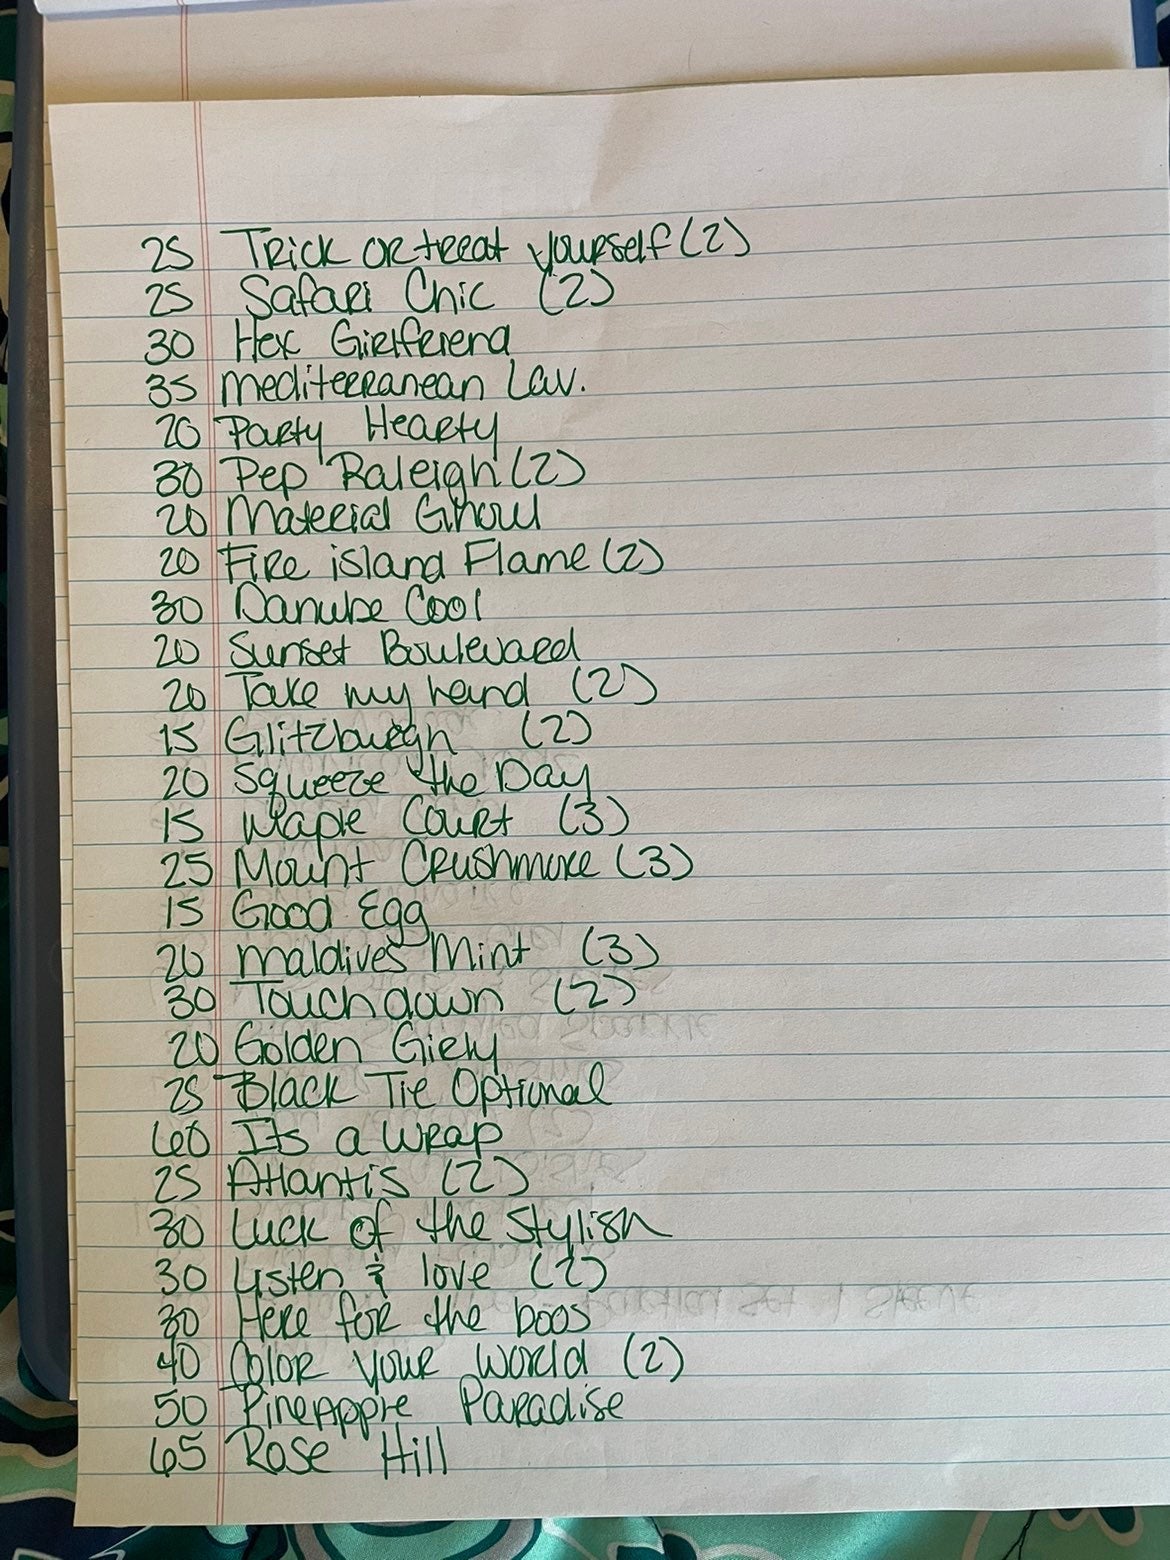 25 Trick or treat yourself (2)
25 Safari Chic (2)
30 Hex Girlfriend
35 Mediterranean Lav.
20 Party Hearty
30 Pep Raleigh (2)
20 Material Ghoul
20 Fire island Flame (2)
30 Danube Cool
20 Sunset Boulevard
20 Take my hand (2)
15 Glitzburgh (2)
20 Squeeze the Day
15 Maple Court (3)
25 Mount Crushmore (3)
15 Good Egg
20 Maldives Mint (3)
30 Touchdown (2)
20 Golden Girly
25 Black Tie Optional
60 Its a wrap
25 Atlantis (2)
30 Luck of the Stylish
30 Listen & love (2)
30 Here for the boos
40 Color your world (2)
50 Pineapple Paradise
65 Rose Hill